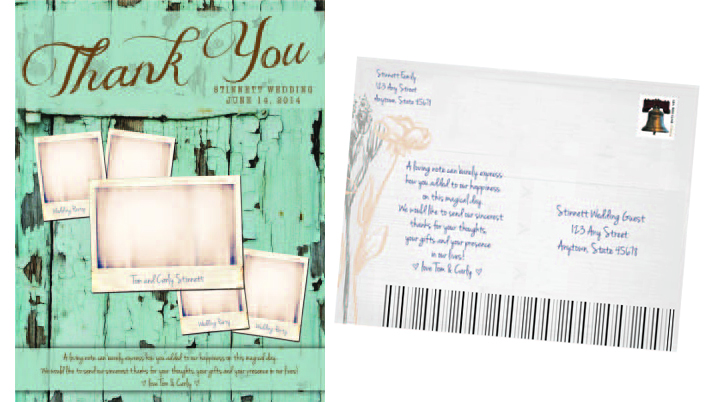 Thank You
STINNETT WEDDING
JUNE 14, 2014
Wedding Party
Tom and Carly Stinnett
Wedding Party
Wedding Party
A loving note can barely express how you added to our happiness on this magical day.
We would like to send our sincerest thanks for your thoughts, your gifts and your presence in our lives!
♡ love Tom & Carly ♡
Stinnett Family
123 Any Street
Anytown, State 45671
A loving note can barely express
how you added to our happiness
on this magical day.
We would like to send our sincerest
thanks for your thoughts,
your gifts and your presence
in our lives!
♡ love Tom & Carly ♡
Stinnett Wedding Guest
123 Any Street
Anytown, State 45671